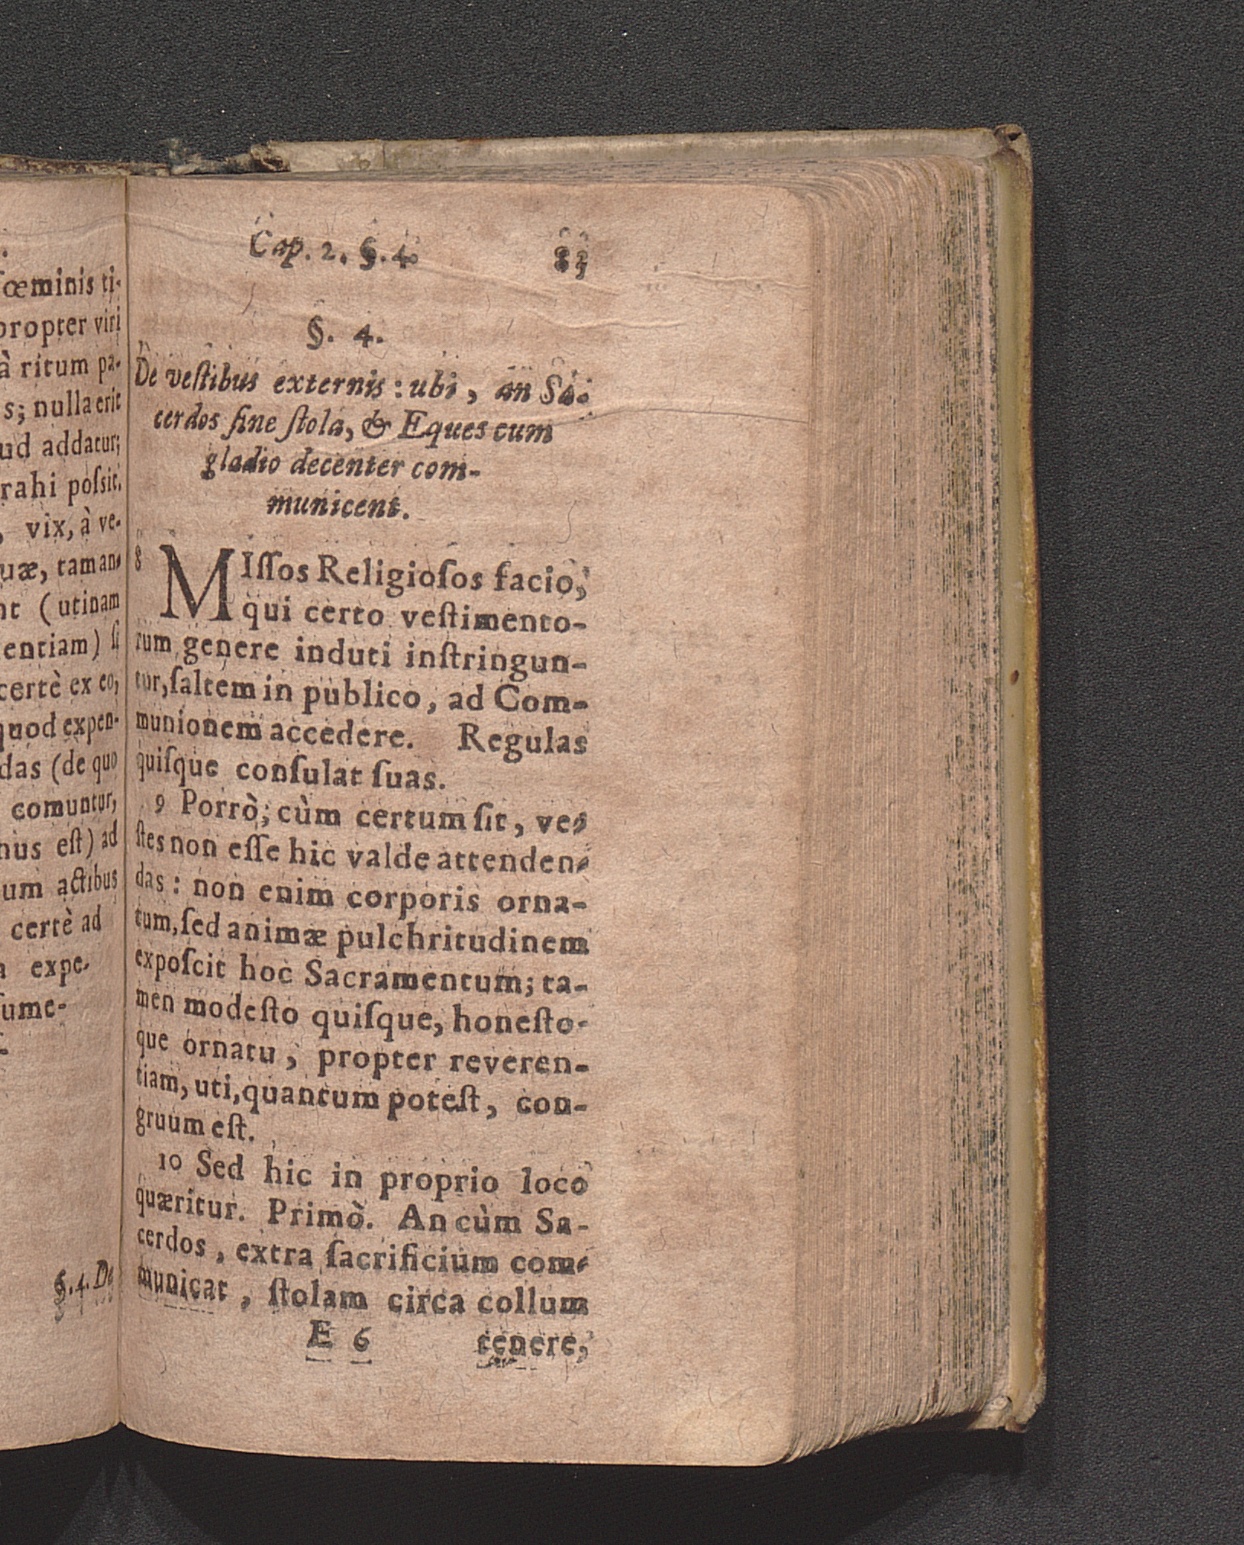 fœminis ti-
propter viri
à ritum pa-
s; nulla erit
ud addatur;
rahi poſsit.
, vix, à ve-
uæ, taman-
nt (utinam
entiam) ſi
certè ex eo,
quod expen-
das (de quo
comuntur,
nus eſt) ad
um actibus
certè ad
a expe-
ſume-
§. 4. De
Cap. 2. §. 4.
§. 4.
De veſtibus externis : ubi, an Sa-
cerdos ſine ſtola, & Eques cum
gladio decenter com-
municent.
8 MIſſos Religioſos facio,
qui certo veſtimento-
rum genere induti inſtringun-
tur, ſaltem in publico, ad Com-
munionem accedere. Regulas
quiſque conſulat ſuas.
9 Porrò; cùm certum ſit, ve-
ſtes non eſſe hic valde attenden-
das : non enim corporis orna-
tum, ſed animæ pulchritudinem
expoſcit hoc Sacramentum; ta-
men modeſto quiſque, honeſto-
que ornatu, propter reveren-
tiam, uti, quantum poteſt, con-
gruum eſt.
10 Sed hic in proprio loco
quæritur. Primò. An cùm Sa-
cerdos, extra ſacrificium com-
municat, ſtolam circa collum
E 6 tenere,